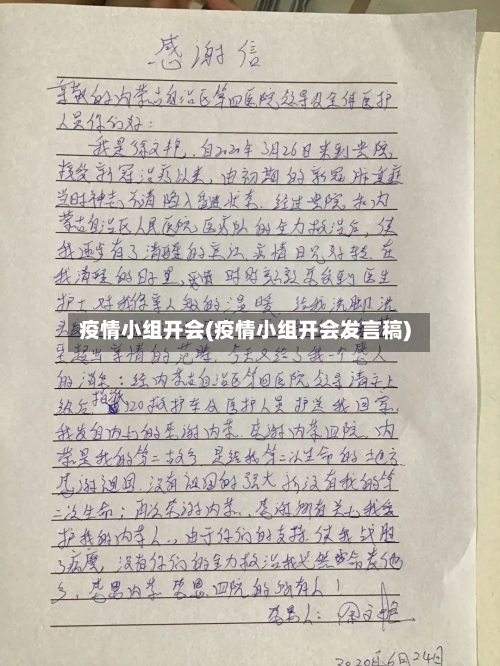 感谢信
尊敬的内蒙古自治区第四医院领导及全体医护
人员你们好:
我是徐文艳,自2020年3月26日来到贵院
接受新冠治疗以来,由初期的新冠肺重症
当时神志不清陷入昏迷状态.经过贵院和内
蒙古自治区人民医院医疗队的全力救治后,使
我逐步有了清醒的意识,病情日见好转.在
我清醒的日子里,时时刻刻感受到医生
护士对我像亲人般的温暖.给我洗脚洗
疫情小组开会(疫情小组开会发言稿)
超出亲情的范畴,今天又给了我一个惊人
的消息:经内蒙古自治区第四医院领导请示上
级后指派120救护车及医护人员护送我回家,
我发自内心的感谢内蒙.感谢内蒙四院,内
蒙是我的第二故乡,是给我第二次生命的地方
感谢祖国,没有祖国的强大就没有我的第
二次生命;再次感谢内蒙、感谢所有关心我爱
护我的内蒙人,由于你们的支持使我战胜
了病魔,没有你们的全力救治我必然命丧他
乡,感恩内蒙 感恩四院的所有人!
感恩人:徐文艳
2020年6月24日